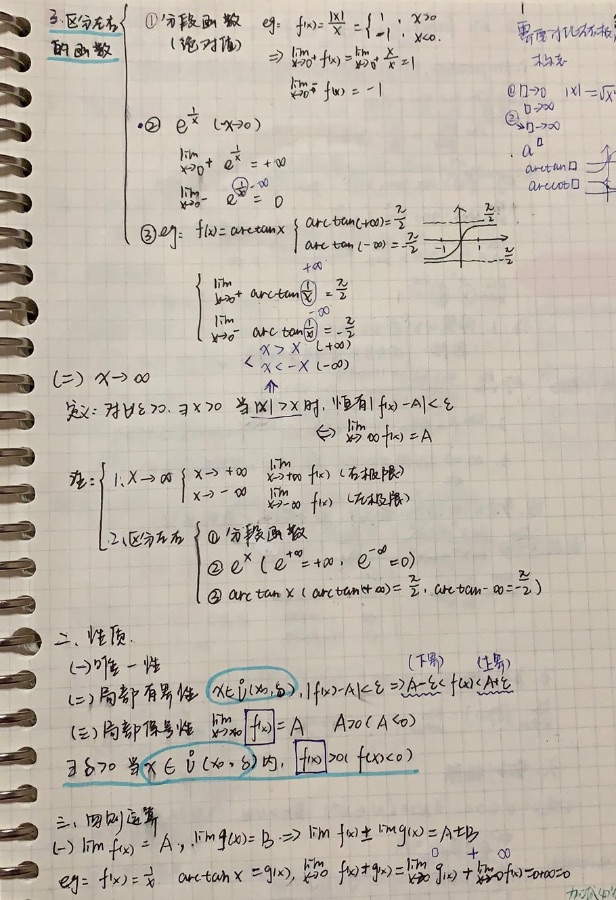 3. 区分左右的函数
① 分段函数 (绝对值) eg: f(x)=|x|/x = { 1, x>0 ; -1, x<0.
⇒ lim x→0⁺ f(x) = lim x→0⁺ x/x = 1
lim x→0⁻ f(x) = -1
② e^(1/x) (x→0)
lim x→0⁺ e^(1/x) = +∞
lim x→0⁻ e^(1/x) = 0 -∞
③ eg: f(x)=arctanx { arctan(+∞)=π/2
arctan(-∞)=-π/2
π/2 -1 1 -π/2
+∞
lim x→0⁺ arctan(1/x) = π/2
-∞
lim x→0⁻ arctan(1/x) = -π/2
x>X (+∞)
x<-X (-∞)
(二) x→∞
定义: 对∀ε>0, ∃X>0 当|x|>X时, 恒有|f(x)-A|<ε
⇔ lim x→∞ f(x)=A
注: 1. x→∞ { x→+∞ lim x→+∞ f(x) (右极限)
x→-∞ lim x→-∞ f(x) (左极限)
2. 区分左右 { ① 分段函数
② e^x (e^(+∞)=+∞, e^(-∞)=0)
③ arctanx (arctan(+∞)=π/2, arctan-∞=-π/2)
二、性质.
(一) 唯一性
(下界) (上界)
(二) 局部有界性 x∈Ů(x₀,δ), |f(x)-A|<ε ⇒ A-ε<f(x)<A+ε
(三) 局部保号性 lim x→x₀ f(x)=A A>0(A<0)
∃δ>0 当x∈Ů(x₀,δ)内, f(x)>0( f(x)<0)
三、四则运算
(一) lim f(x)=A, lim g(x)=B ⇒ lim f(x)±lim g(x)=A±B
0 + ∞
eg: f(x)=1/x arctanx=g(x), lim x→0 f(x)+g(x)=lim x→0 g(x)+lim x→0 f(x)=0+∞=∞
① □→0 |x|=√x
□→∞
② □→∞
a^□
arctan□
arccot□